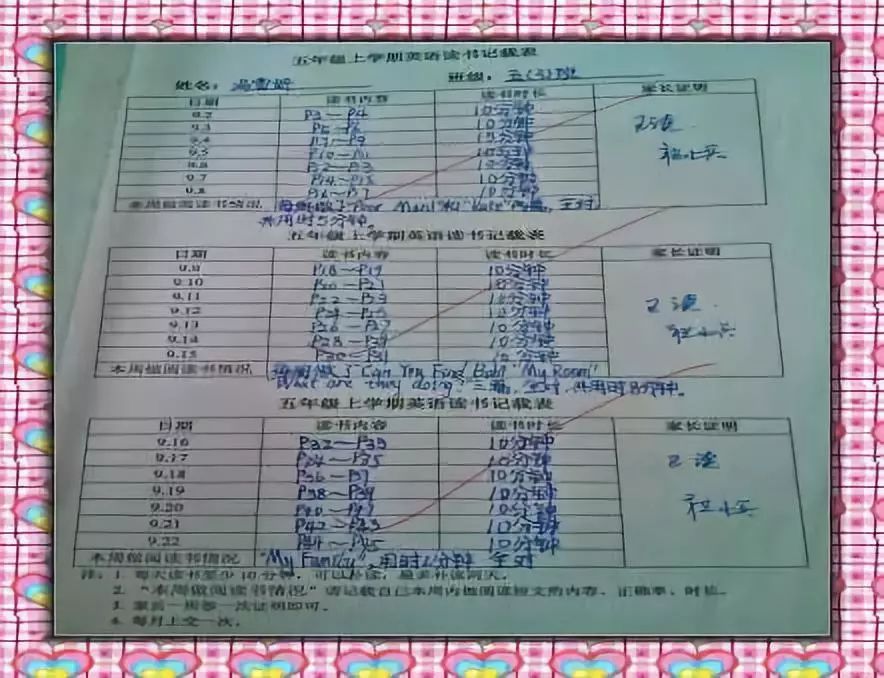 五年级上学期英语读书记载表
姓名： 班级：五(3)班
日期 读书内容 读书时长 家长证明
9.2 P3～P4 10分钟 已读
9.3 10分钟
9.4 分钟
9.5 P10～P11 10分钟
9.6 P12～P13 10分钟
9.7 P14～P15 10分钟
9.8 P16～P17 10分钟
本周做阅读书情况 全对
共用时5分钟
五年级上学期英语读书记载表
日期 读书内容 读书时长 家长证明
9.9 P18～P19 10分钟 已读
9.10 P20～P21 10分钟
9.11 P22～P23 10分钟
9.12 P24～P25 10分钟
9.13 P26～P27 10分钟
9.14 P28～P29 10分钟
9.15 P30～P31 10分钟
本周做阅读书情况 做了 Can You Find "My Room"
What are they doing 三篇，全对，共用时8分钟。
五年级上学期英语读书记载表
日期 读书内容 读书时长 家长证明
9.16 P32～P33 10分钟 已读
9.17 P34～P35 10分钟
9.18 P36～P37 10分钟
9.19 P38～P39 10分钟
9.20 P40～P41 10分钟
9.21 P42～P43 10分钟
9.22 P44～P45 10分钟
本周做阅读书情况 "My Family"，用时 分钟 全对
注：1. 每天读书至少10分钟，可以补读，最多补读两天。
2. "本周做阅读书情况"请记载自己本周内做阅读短文的内容、正确率、时长。
3. 家长一周签一次证明即可。
4. 每月上交一次。